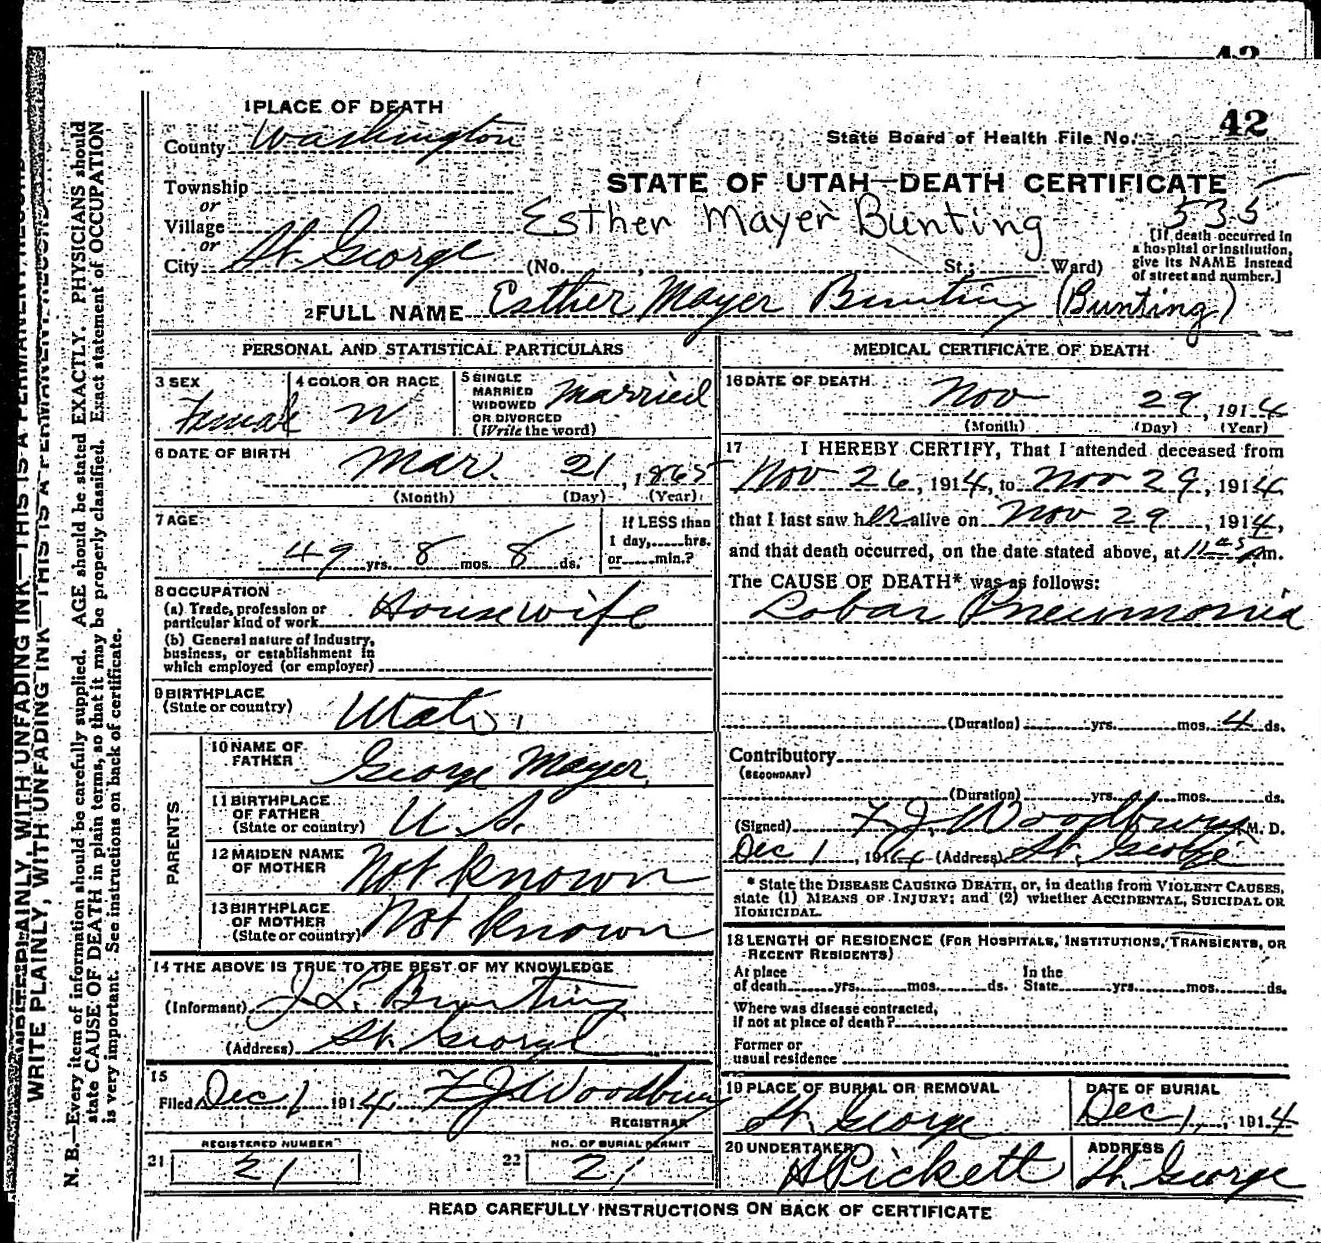 42
1 PLACE OF DEATH
County Washington
State Board of Health File No. 42
Township
or
Village
or
City St. George
STATE OF UTAH—DEATH CERTIFICATE
Esther Mayer Bunting
535
(No. , St.; Ward)
[If death occurred in a hospital or institution, give its NAME instead of street and number.]
2 FULL NAME Esther Mayer Bunting (Bunting)
PERSONAL AND STATISTICAL PARTICULARS
3 SEX Female
4 COLOR OR RACE W
5 SINGLE MARRIED WIDOWED OR DIVORCED (Write the word) Married
6 DATE OF BIRTH Mar. 21, 1865
(Month) (Day) (Year)
7 AGE 49 yrs. 8 mos. 8 ds.
If LESS than
1 day, hrs.
or min.?
8 OCCUPATION
(a) Trade, profession or
particular kind of work Housewife
(b) General nature of industry,
business, or establishment in
which employed (or employer)
9 BIRTHPLACE
(State or country) Utah
PARENTS
10 NAME OF FATHER George Mayer
11 BIRTHPLACE OF FATHER (State or country) U.S.
12 MAIDEN NAME OF MOTHER Not Known
13 BIRTHPLACE OF MOTHER (State or country) Not Known
14 THE ABOVE IS TRUE TO THE BEST OF MY KNOWLEDGE
(Informant) J L. Bunting
(Address) St. George
15
Filed Dec 1 1914, F J Woodbury
REGISTRAR
REGISTERED NUMBER
21 21
NO. OF BURIAL PERMIT
22 21
MEDICAL CERTIFICATE OF DEATH
16 DATE OF DEATH Nov 29, 1914
(Month) (Day) (Year)
17 I HEREBY CERTIFY, That I attended deceased from
Nov 26, 1914, to Nov 29, 1914,
that I last saw her alive on Nov 29, 1914,
and that death occurred, on the date stated above, at 11 45 pm.
The CAUSE OF DEATH* was as follows:
Lobar Pneumonia
(Duration) yrs. mos. 4 ds.
Contributory
(SECONDARY)
(Duration) yrs. mos. ds.
(Signed) F. J. Woodbury M. D.
Dec 1, 1914 (Address) St. George
* State the DISEASE CAUSING DEATH, or, in deaths from VIOLENT CAUSES,
state (1) MEANS OF INJURY; and (2) whether ACCIDENTAL, SUICIDAL OR
HOMICIDAL.
18 LENGTH OF RESIDENCE (FOR HOSPITALS, INSTITUTIONS, TRANSIENTS, OR
RECENT RESIDENTS)
At place
of death yrs. mos. ds.
In the
State yrs. mos. ds.
Where was disease contracted,
If not at place of death?
Former or
usual residence
19 PLACE OF BURIAL OR REMOVAL St. George
DATE OF BURIAL Dec 1, 1914
20 UNDERTAKER Pickett
ADDRESS St. George
READ CAREFULLY INSTRUCTIONS ON BACK OF CERTIFICATE
WRITE PLAINLY, WITH UNFADING INK—THIS IS A PERMANENT RECORD
N. B.—Every item of information should be carefully supplied. AGE should be stated EXACTLY. PHYSICIANS should
state CAUSE OF DEATH in plain terms, so that it may be properly classified. Exact statement of OCCUPATION
is very important. See instructions on back of certificate.